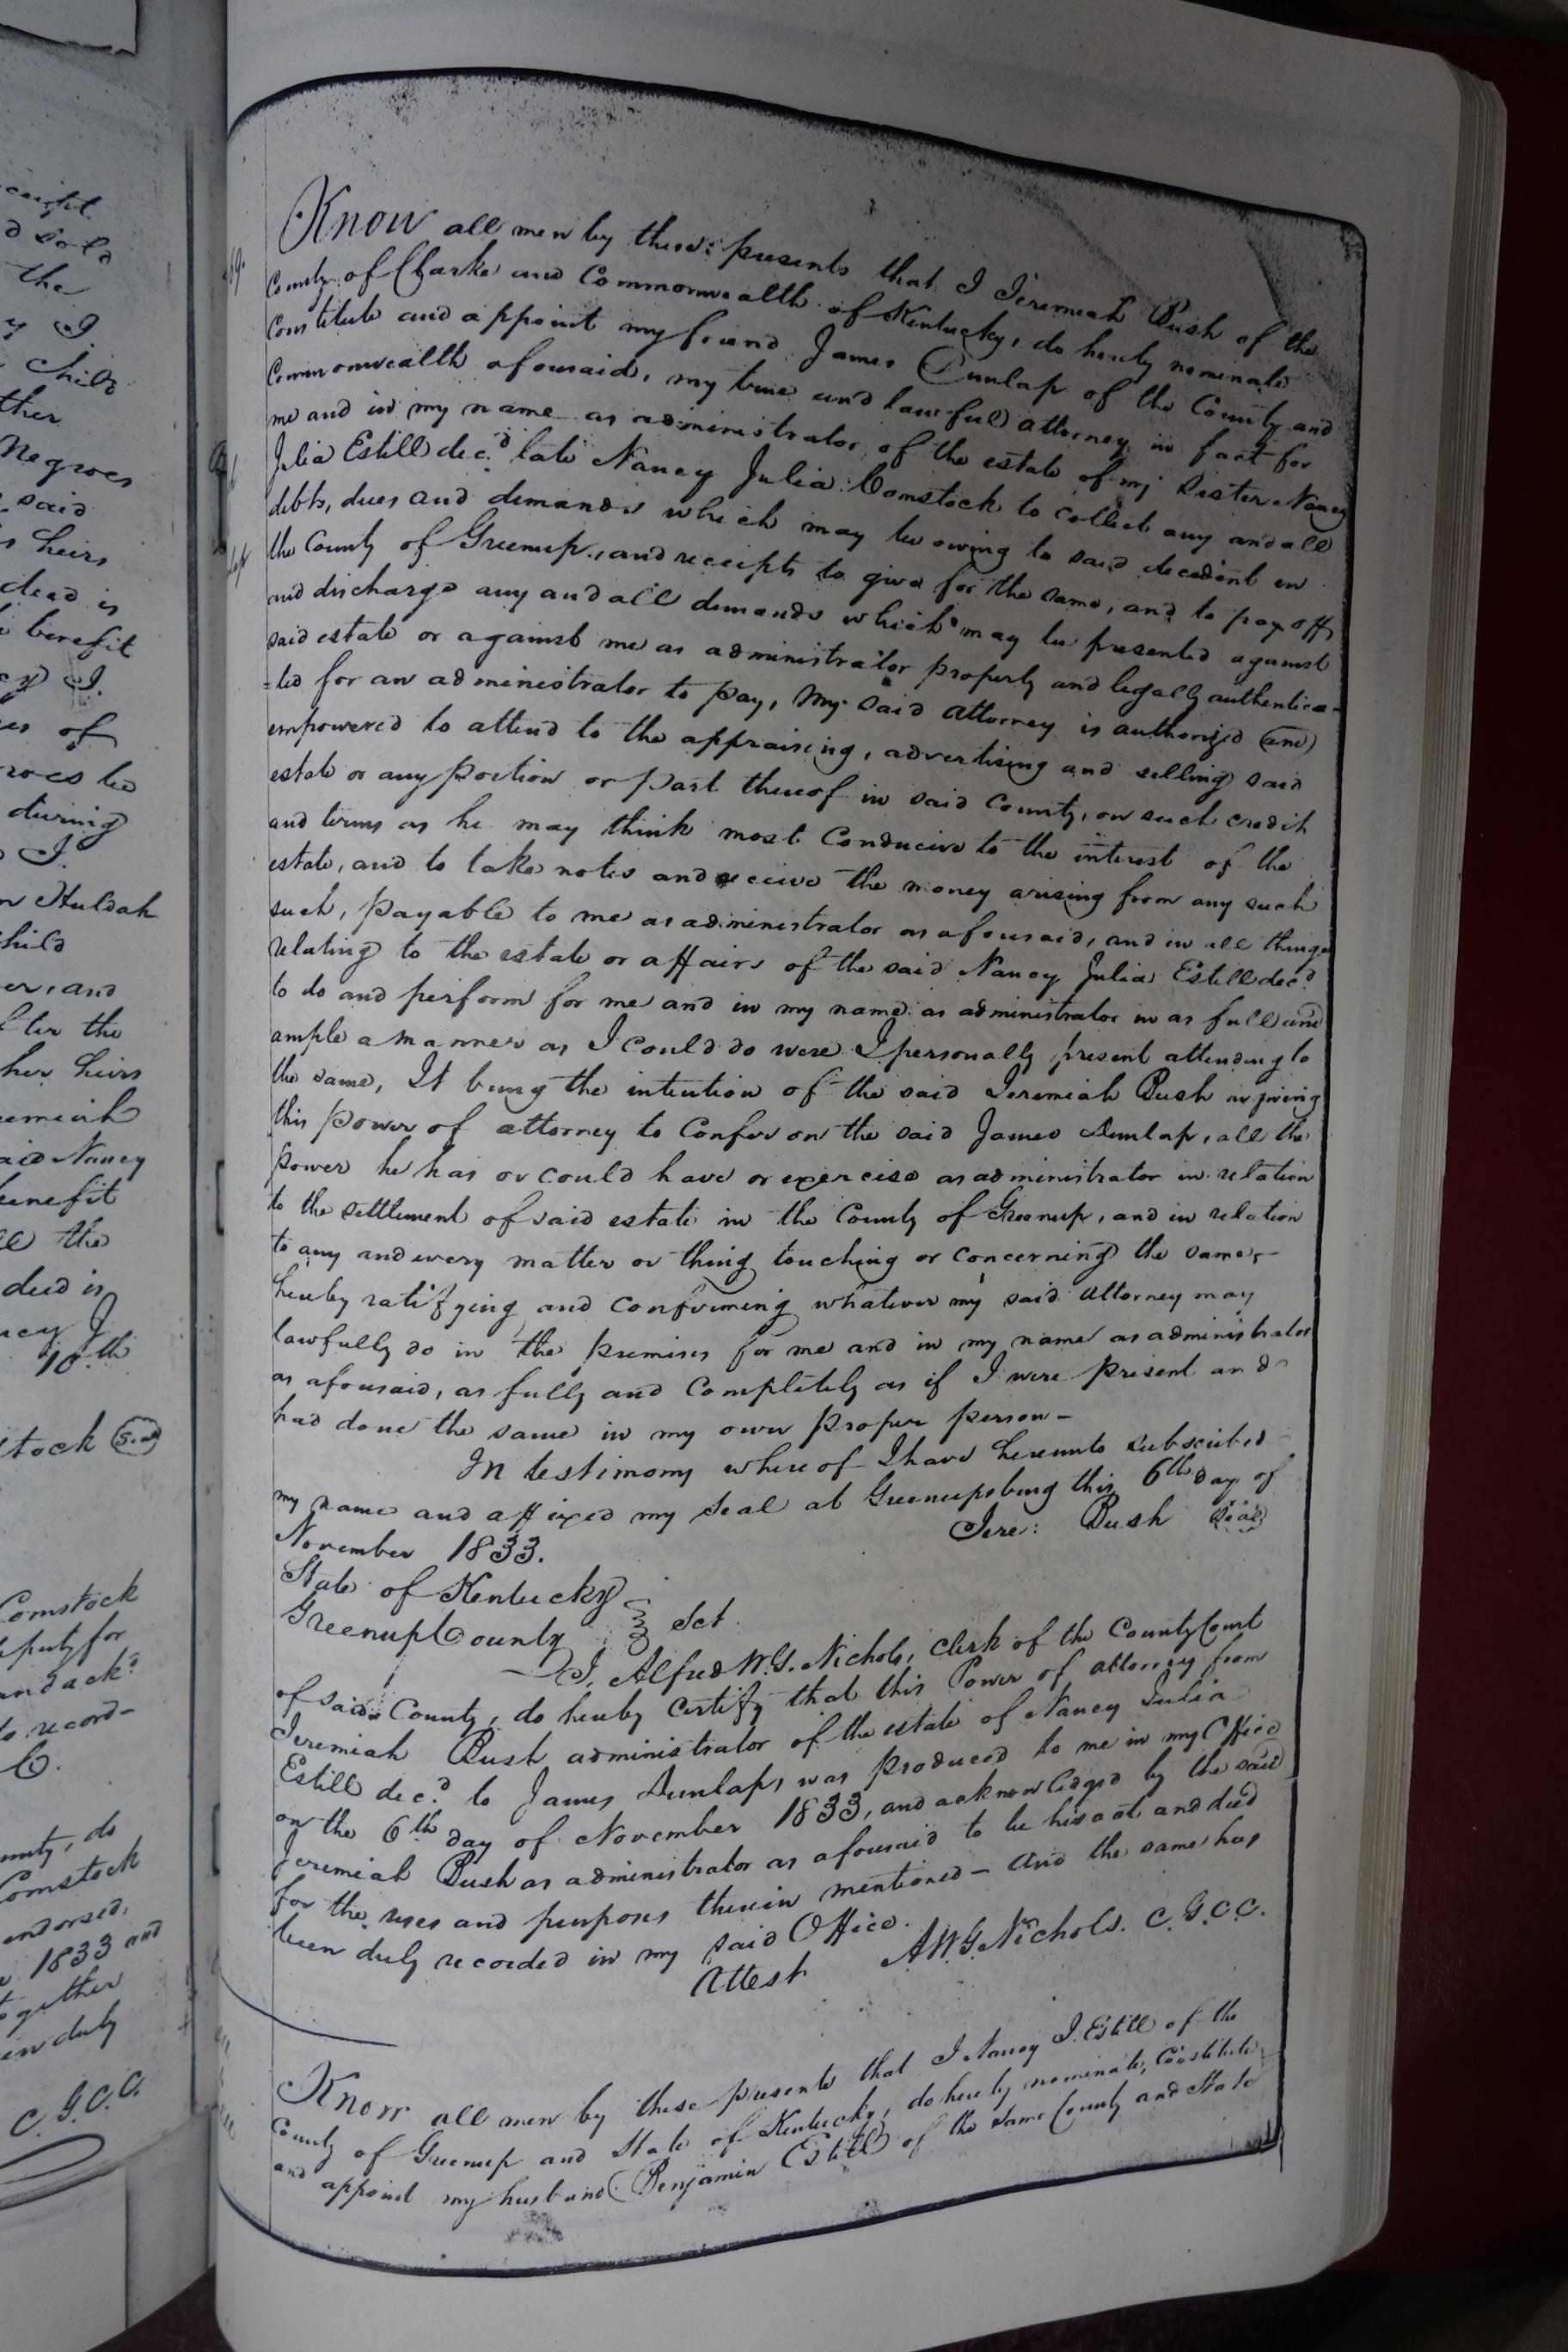 ceipt
d sold
the
y I.
child
ther
Negroes
said
s heirs
dead is
benefit
cy I.
es of
roes be
during
I.
n Huldah
child
er, and
fter the
her heirs
emiah
aid Nancy
benefit
ll the
deed is
ncy J
10th
stock Seal
Comstock
eputy for
and ack.d
to record-
C.
unty, do
Comstock
endorsed,
1833 and
together
en duly
C. G. C. C.
Know all men by these presents that I Jeremiah Bush of the
County of Clarke and Commonwealth of Kentucky, do hereby nominate
Constitute and appoint my friend James Dunlap of the County and
Commonwealth aforesaid, my true and lawful attorney in fact for
me and in my name as administrator of the estate of my Sister Nancy
Julia Estill dec.d late Nancy Julia Comstock to collect any and all
debts, dues and demands which may be owing to said decedent in
the County of Greenup, and receipts to give for the same, and to pay off
and discharge any and all demands which may be presented against
said estate or against me as administrator properly and legally authentica-
=ted for an administrator to pay, My said attorney is authorized and
empowered to attend to the appraising, advertising and selling said
estate or any portion or part thereof in said County, on such credit
and terms as he may think most Conducive to the interest of the
estate, and to take notes and receive the money arising from any such
such, payable to me as administrator as aforesaid, and in all things
relating to the estate or affairs of the said Nancy Julia Estill dec.d
to do and perform for me and in my name as administrator in as full and
ample a manner as I could do were I personally present attending to
the same, It being the intention of the said Jeremiah Bush in giving
this power of attorney to Confer on the said James Dunlap, all the
power he has or could have or exercise as administrator in relation
to the settlement of said estate in the County of Greenup, and in relation
to any and every matter or thing touching or concerning the same,-
hereby ratifying and confirming whatever my said attorney may
lawfully do in the premises for me and in my name as administrator
as aforesaid, as fully and Completely as if I were present and
had done the same in my own proper person-
In testimony whereof I have hereunto subscribed
my name and affixed my Seal at Greenupsburg this 6th day of
November 1833. Jere: Bush Seal
State of Kentucky
Greenup County Sct.
I, Alfred W. G. Nichols, Clerk of the County Court
of said County, do hereby certify that this Power of attorney from
Jeremiah Bush administrator of the estate of Nancy Julia
Estill dec.d to James Dunlap, was produced to me in my Office
on the 6th day of November 1833, and acknowledged by the said
Jeremiah Bush as administrator as aforesaid to be his act and deed
for the uses and purposes therein mentioned- and the same has
been duly recorded in my said Office.
Attest AWG Nichols. C. G. C. C.
Know all men by these presents that I Nancy J. Estill of the
County of Greenup and State of Kentucky, do hereby nominate, Constitute
and appoint my husband Benjamin Estill of the same County and State